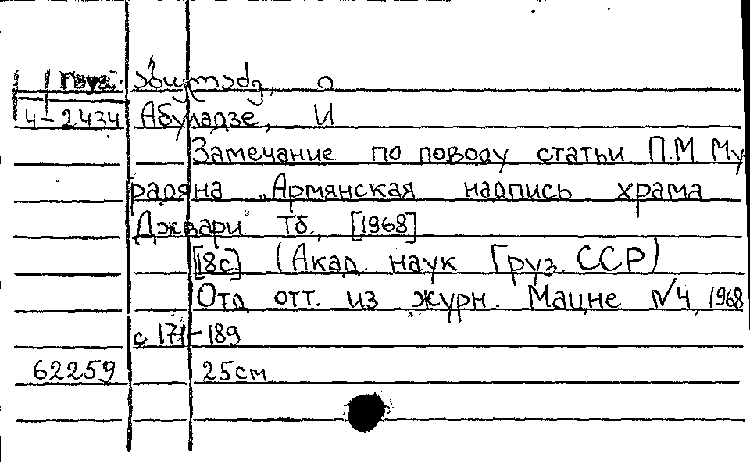 Груз. აბულაძე, ი
4-2434 Абуладзе, И
Замечание по поводу статьи П.М Му
радяна „Армянская надпись храма
Джвари" Тб., [1968]
[18с] (Акад. наук Груз. ССР)
Отд отт. из журн. Мацне №4, 1968
с 171-189
62259 25см